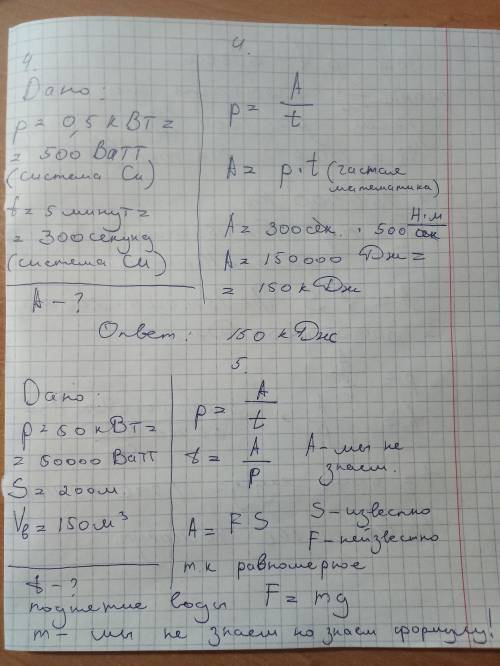 4.
4.
Дано:
p = 0,5 кВт =
= 500 Ватт
(система Си)
t = 5 минут =
= 300 секунд
(система Си)
A - ?
p = A / t
A = p · t (чистая
математика)
A = 300 сек. · 500 Н·м / сек
A = 150000 Дж =
= 150 кДж
Ответ: 150 кДж
5.
Дано:
p = 50 кВт =
= 50000 Ватт
S = 200м.
Vв = 150 м³
t - ?
p = A / t
t = A / p
A - мы не
знаем.
A = F S
S - известно
F - неизвестно
т.к равномерное
поднятие воды F = mg
m - мы не знаем но знаем формулу!